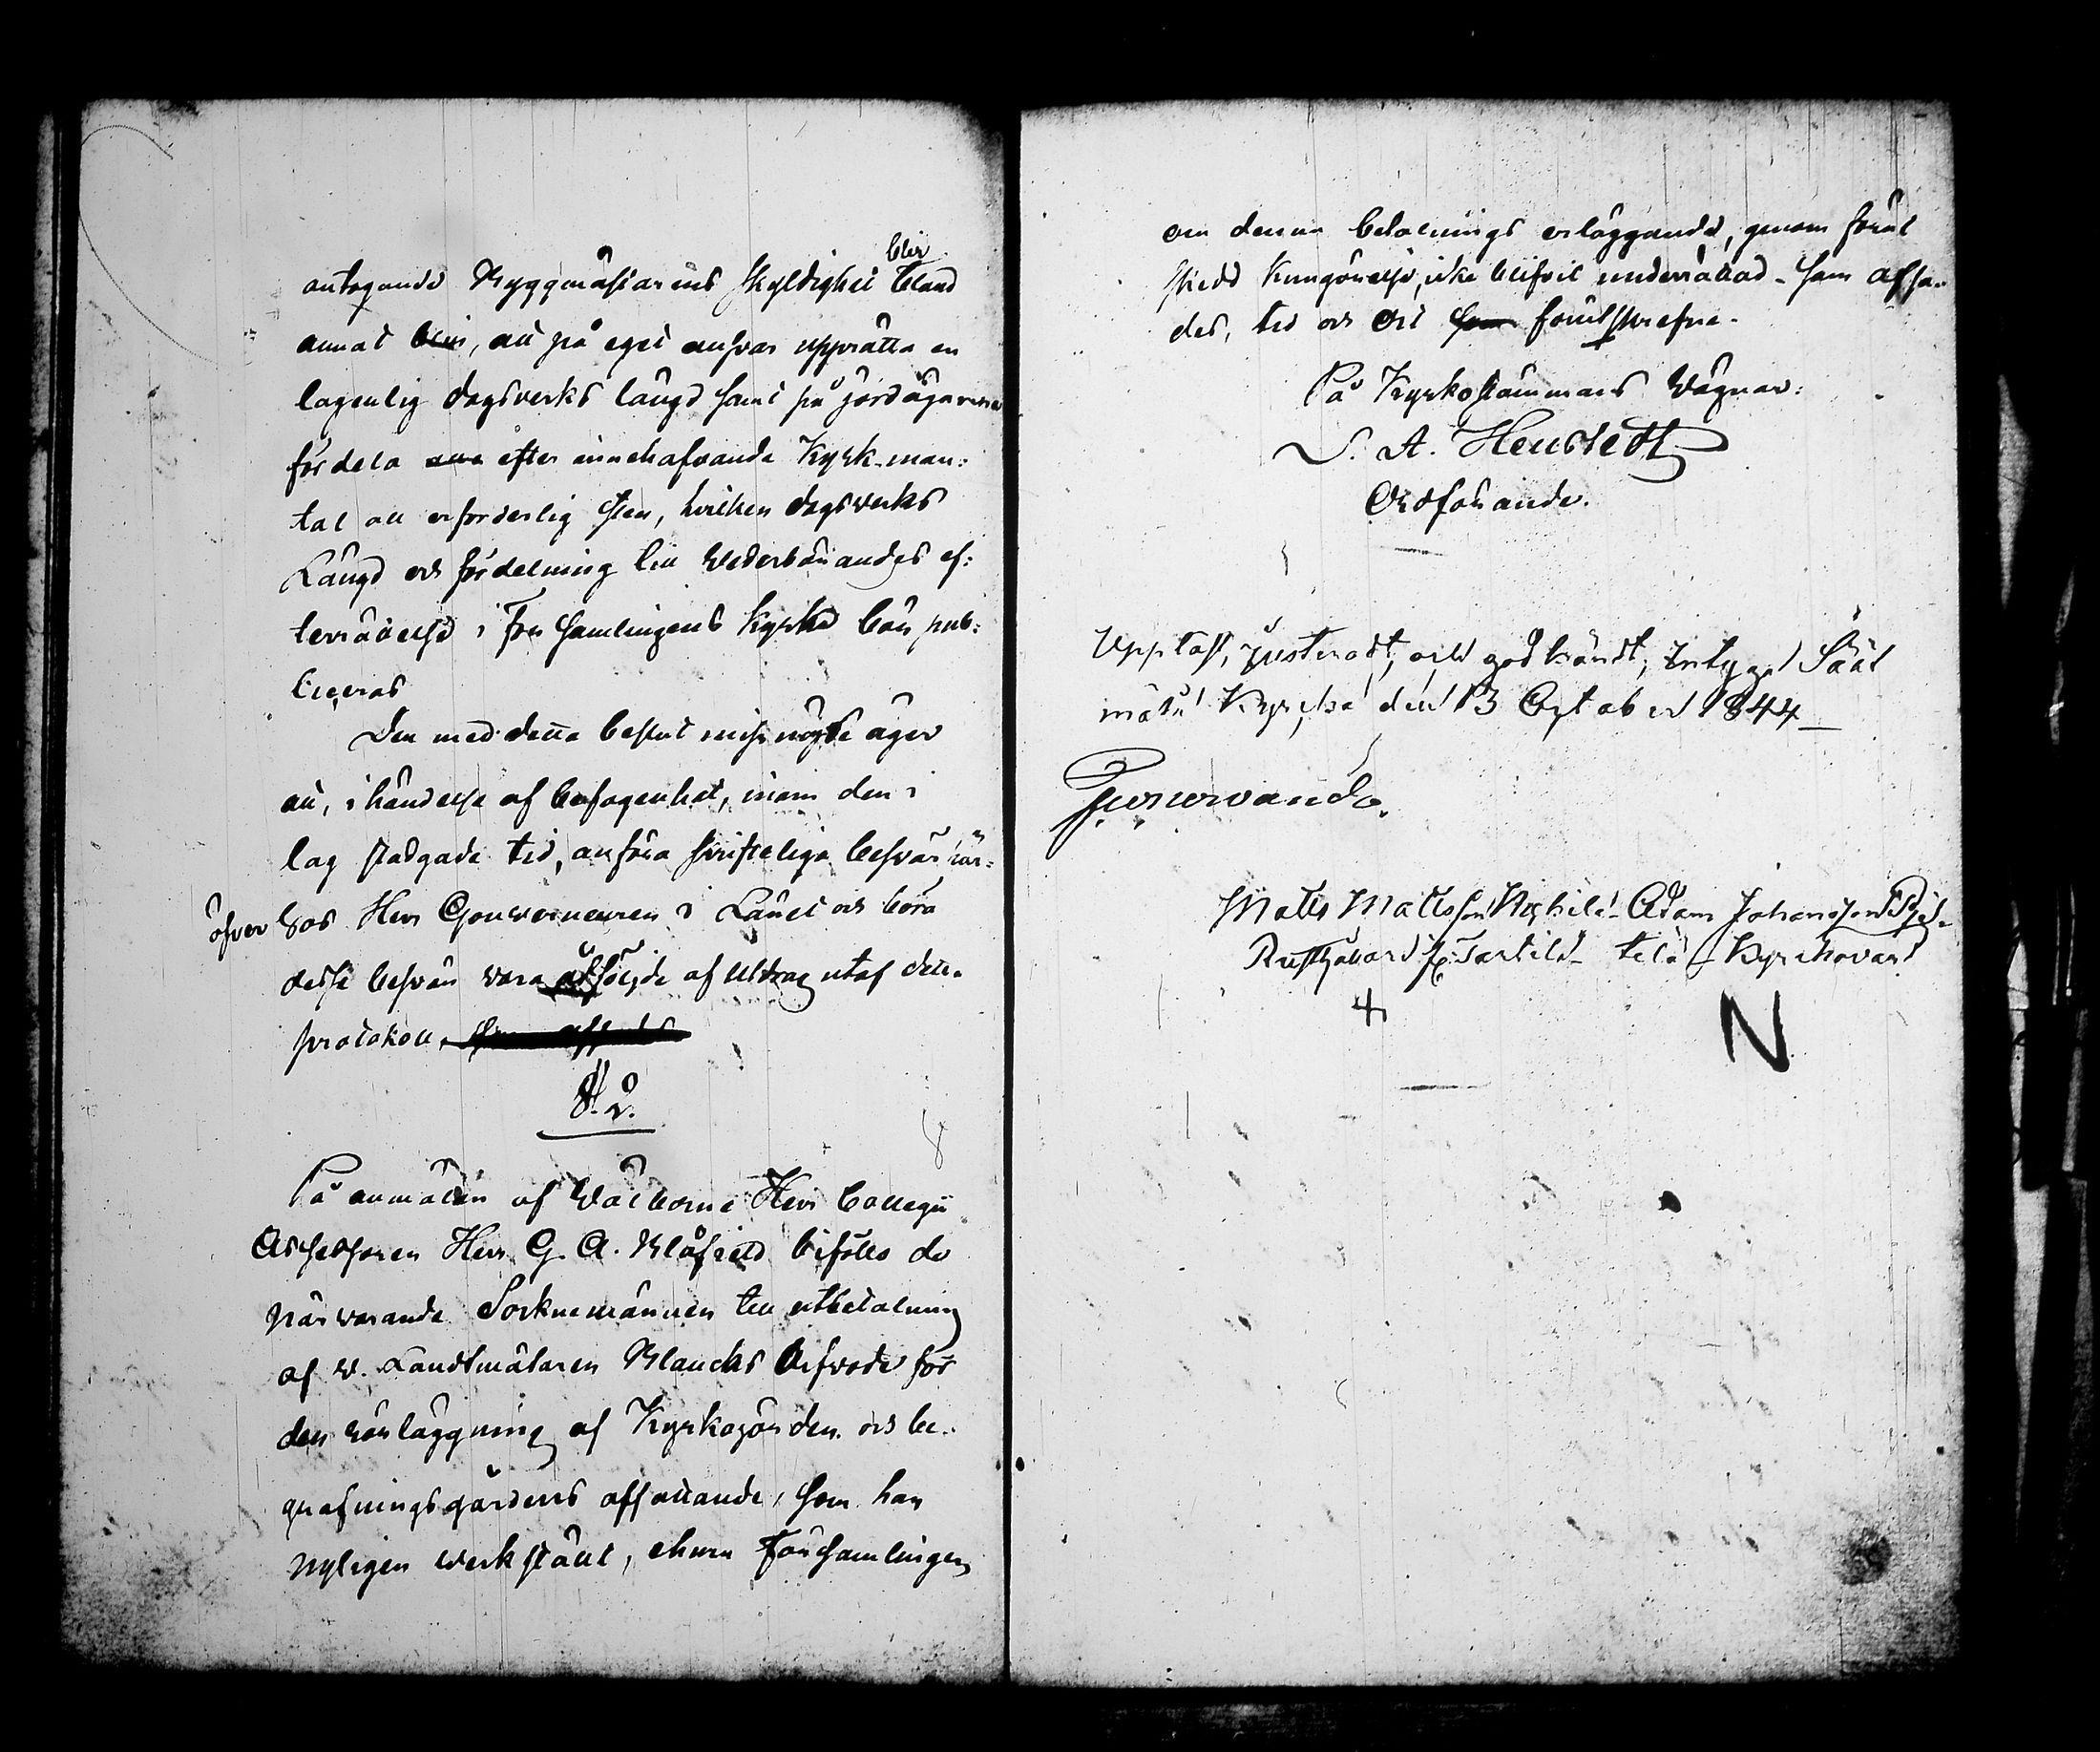 blir
antagande Byggmästarens skyldighet bland
annat blir, att på eget ansvar upprätta en
lagenlig dagsverks längd samt på jordägarena
fördela efter innehafvande Kyrk-man:
tal all erforderlig sten, hvilken dagsverks
Längd och fördelning till Wederbörandes ef:
terrättelse i Församlingens Kyrka bör pub:
liceras
Den med detta beslut missnögde äger
att, i händelse af befogenhet, inom den i
lag stadgade tid, anföra skrifteliga besvär här:
öfver hos Herr Gouverneuren i Länet och böra
desse besvär vara åtföljde af Utdrag utaf detta
protokoll,
§. 2.
På anmälan af Wälborne Herr Collegii
Assessoren Herr G. A. Blåfield biföllo de
närvarande Socknemännen till utbetalning
af V. Landtmätaren Blancks Arfvode för
den rörläggning af Kyrkogården och be-
grafningsgårdens affattande, som han
nyligen werkställt, ehuru Församlingen
om denna betalnings erläggande, genom förut
skedd Kungörelse, icke blifvit underrättad. Som afsa-
des, tid och Ort som förutskrefne.
På Kyrkostämmans Vägnar:
A. Heurledt
Ordförande.
Uppläst, justeradt, och godkändt, intygad Sääx
mäki Kyrcka den 13 October 1844
Matts Mattsson Adam Johansson
Rusthållare Kyrckovard
N